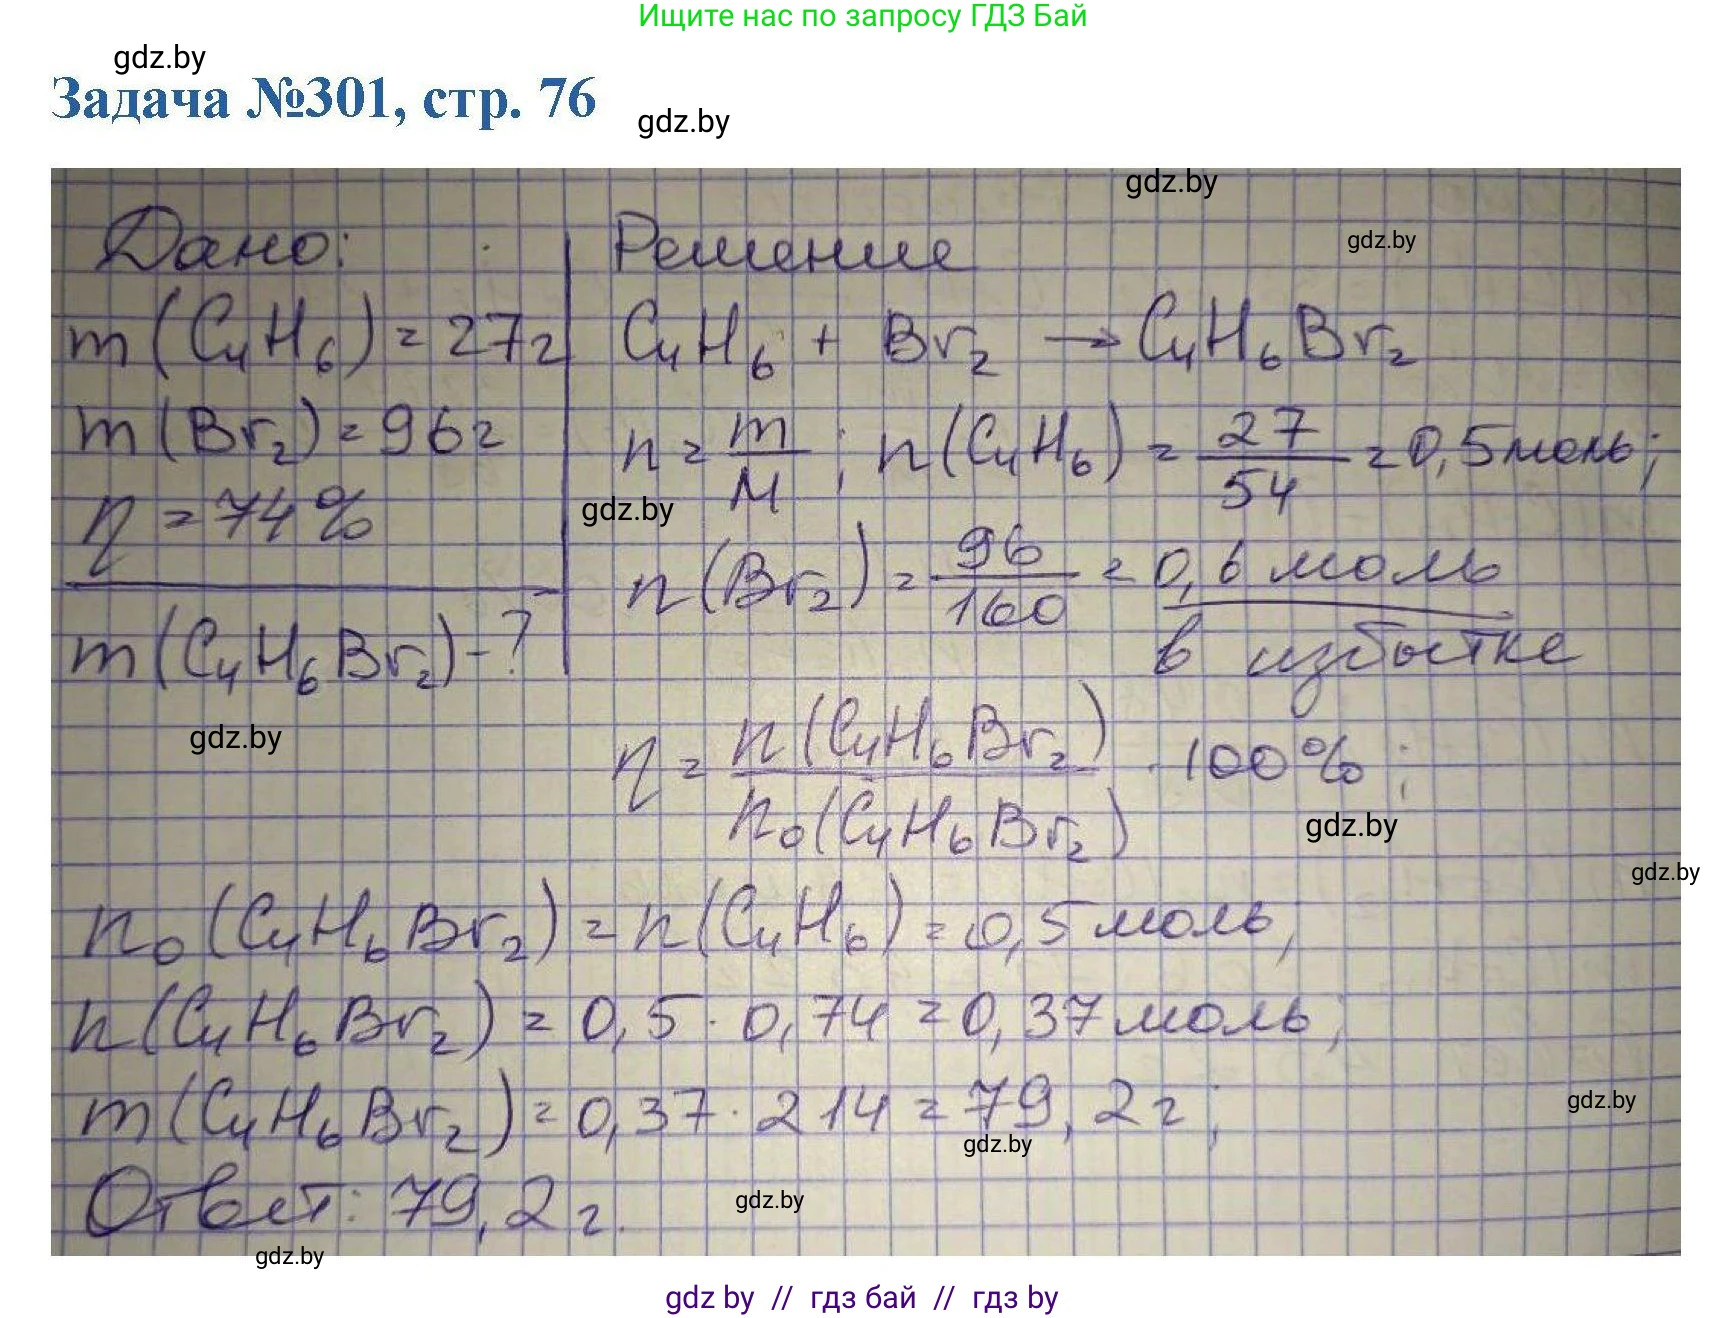 Ищите нас по запросу ГДЗ Бай
gdz.by
Задача №301, стр. 76
gdz.by
gdz.by
Дано:
Решение
gdz.by
m(C₄H₆) = 27г
C₄H₆ + Br₂ → C₄H₆Br₂
m(Br₂) = 96г
n = m/M; n(C₄H₆) = 27/54 = 0,5моль;
η = 74%
gdz.by
n(Br₂) = 96/160 = 0,6 моль
в избытке
m(C₄H₆Br₂) - ?
gdz.by
η = n(C₄H₆Br₂)/n₀(C₄H₆Br₂) · 100%;
gdz.by
gdz.by
n₀(C₄H₆Br₂) = n(C₄H₆) = 0,5 моль;
n(C₄H₆Br₂) = 0,5 · 0,74 = 0,37 моль;
m(C₄H₆Br₂) = 0,37 · 214 = 79,2 г;
gdz.by
gdz.by
Ответ: 79,2 г.
gdz.by
gdz.by
gdz by // гдз бай // гдз by